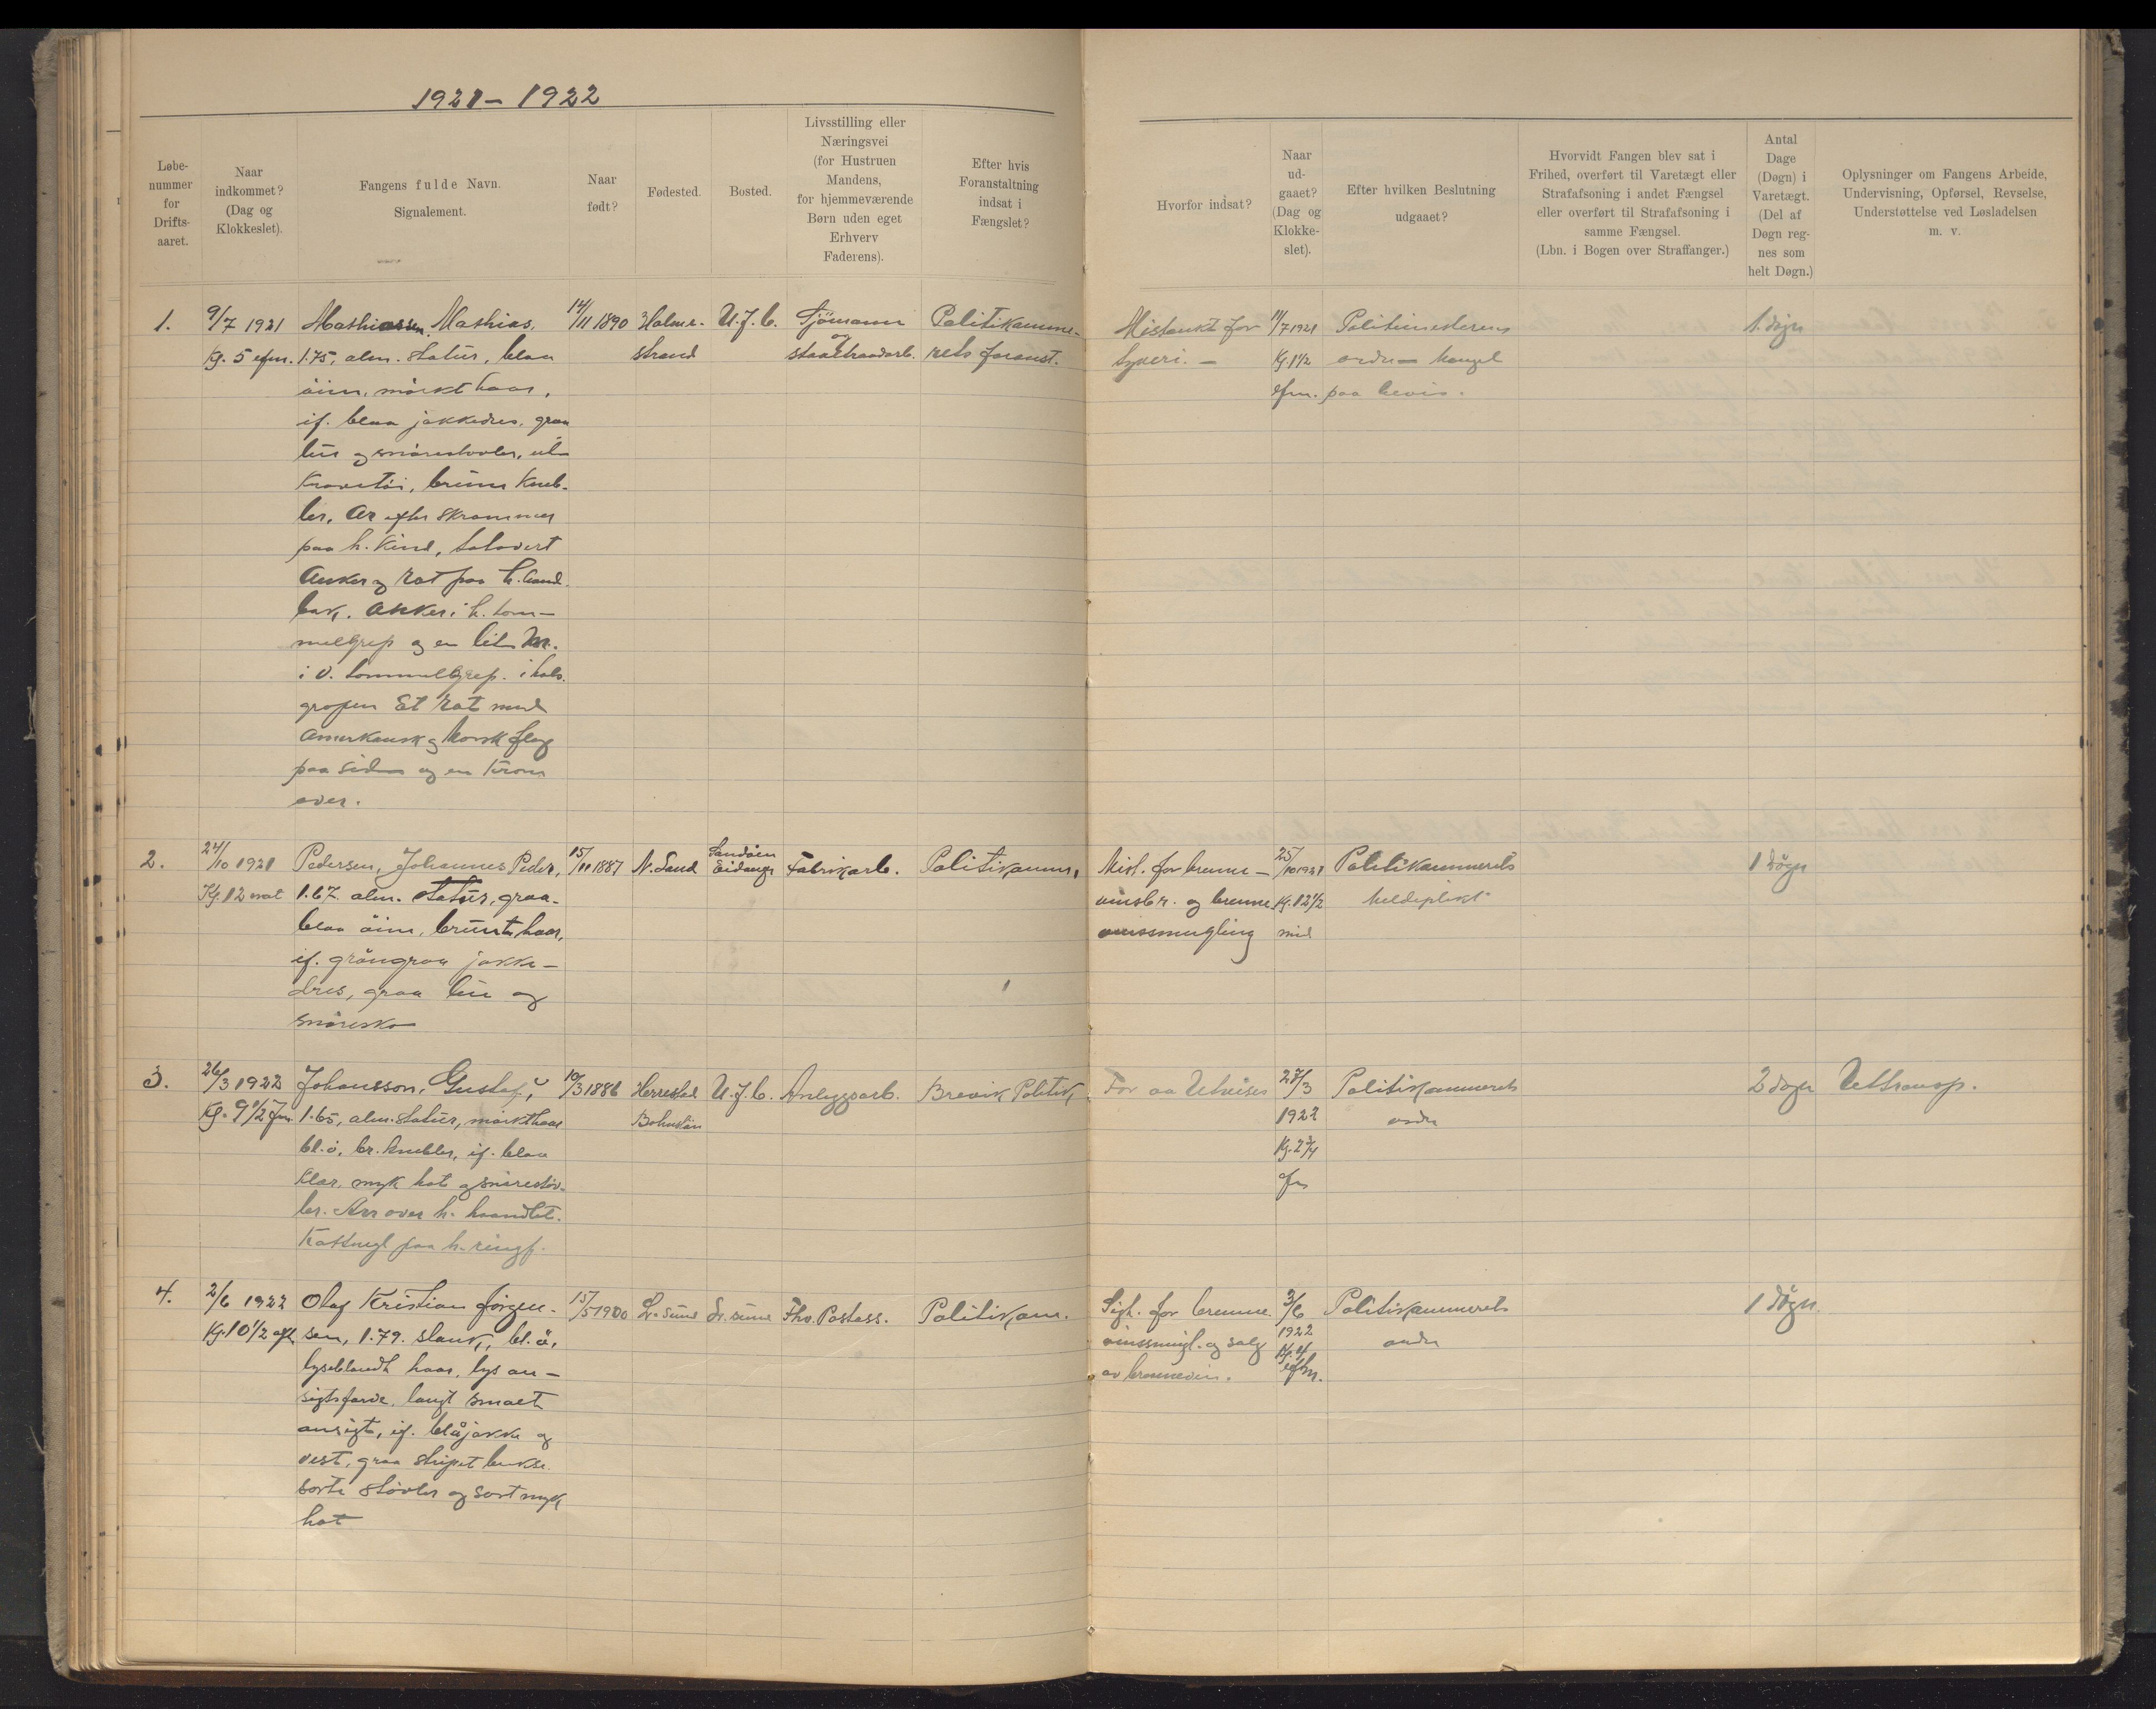 1921 – 1922
Løbe-
nummer
for
Drifts-
aaret.
Naar
indkommet?
(Dag og
Klokkeslet).
Fangens fulde Navn.
Signalement.
Naar
født?
Fødested.
Bosted.
Livsstilling eller
Næringsvei
(for Hustruen
Mandens,
for hjemmeværende
Børn uden eget
Erhverv
Faderens).
Efter hvis
Foranstaltning
indsat i
Fængslet?
Hvorfor indsat?
Naar
ud-
gaaet?
(Dag og
Klokke-
slet).
Efter hvilken Beslutning
udgaaet?
Hvorvidt Fangen blev sat i
Frihed, overført til Varetægt eller
Strafafsoning i andet Fængsel
eller overført til Strafafsoning i
samme Fængsel.
(Lbn. i Bogen over Straffanger.)
Antal
Dage
(Døgn) i
Varetægt.
(Del af
Døgn reg-
nes som
helt Døgn.)
Oplysninger om Fangens Arbeide,
Undervisning, Opførsel, Revselse,
Understøttelse ved Løsladelsen
m. v.
1.
9/7 1921
Kg. 5 efm.
Mathiassen, Mathias,
1.75, alm. statur, blaa
öine, mörkt haar,
if. blaa jakkedres, graa
lue og snörestövler, ul-
kravetöi, brune kneb-
ler. Ar efter skrammer
paa h. kind, tatovert
Anker og rat paa h. haand-
bak. Anker i h. tom-
melgrep og en liten
i v. tommelgrep. i hals-
gropen Et rat med
Amerkansk og Norsk flag
paa siden og en krone
over.
14/11 1890
Holme-
strand
U.f.b.
Sjömann
og
staaltraadarb.
Politikamme-
rets foranst.
Mistenkt for
tyveri. –
11/7 1921
Kg. 1 1/2
efm.
Politimesterens
ordre – Mangel
paa bevis.
1. dögn
2.
24/10 1921
Kg. 12 nat
Pedersen, Johannes Peder,
1.67. alm. statur, graa-
blaa öine, brunt haar,
if. gröngraa jakke-
dres, graa lue og
snöresko
15/11 1887
N. Sand
Sandöen
Eidanger
Fabrikarb.
Politikamm.
Mist. for brenne-
vinsbr. og brenne-
vinssmugling
25/10 1921
Kg. 12 1/2
mid
Politikammerets
meldeplikt
1 Dögn
3.
26/3 1922
Kg. 9 1/2 fm
Johansson, Gustaf,
1.65, alm. statur, mörkt haar
bl. ö. br. knebler, if. blaa
klær, myk hat og snörestöv-
ler. Arr over h. haandled.
 paa h. ringf.
10/3 1886
Herrestad
Bohuslän
U.f.b.
Anleggsarb.
Brevik Politik.
For aa Utvises
27/3
1922
Kg. 2 3/4
efm
Politikammerets
ordre
2 dögn
Uttransp.
4.
2/6 1922
Kg. 10 1/2 eft
Olaf Kristian Jörgen-
sen, 1.79. slank, bl. ö.
lyseblondt haar, lys an-
sigtsfarve, langt smalt
ansigt, if. blå jakke og
vest, graa stripet bukse
sorte stövler og sort myk
hat
15/5 1900
L.-sund
L.-sund
Fhv. Postass.
Politikam.
Sigt. for brenne-
vinssmugl. og salg
av brennevin.
3/6
1922
Kg. 4
efm.
Politikammerets
ordre
1 Dögn.